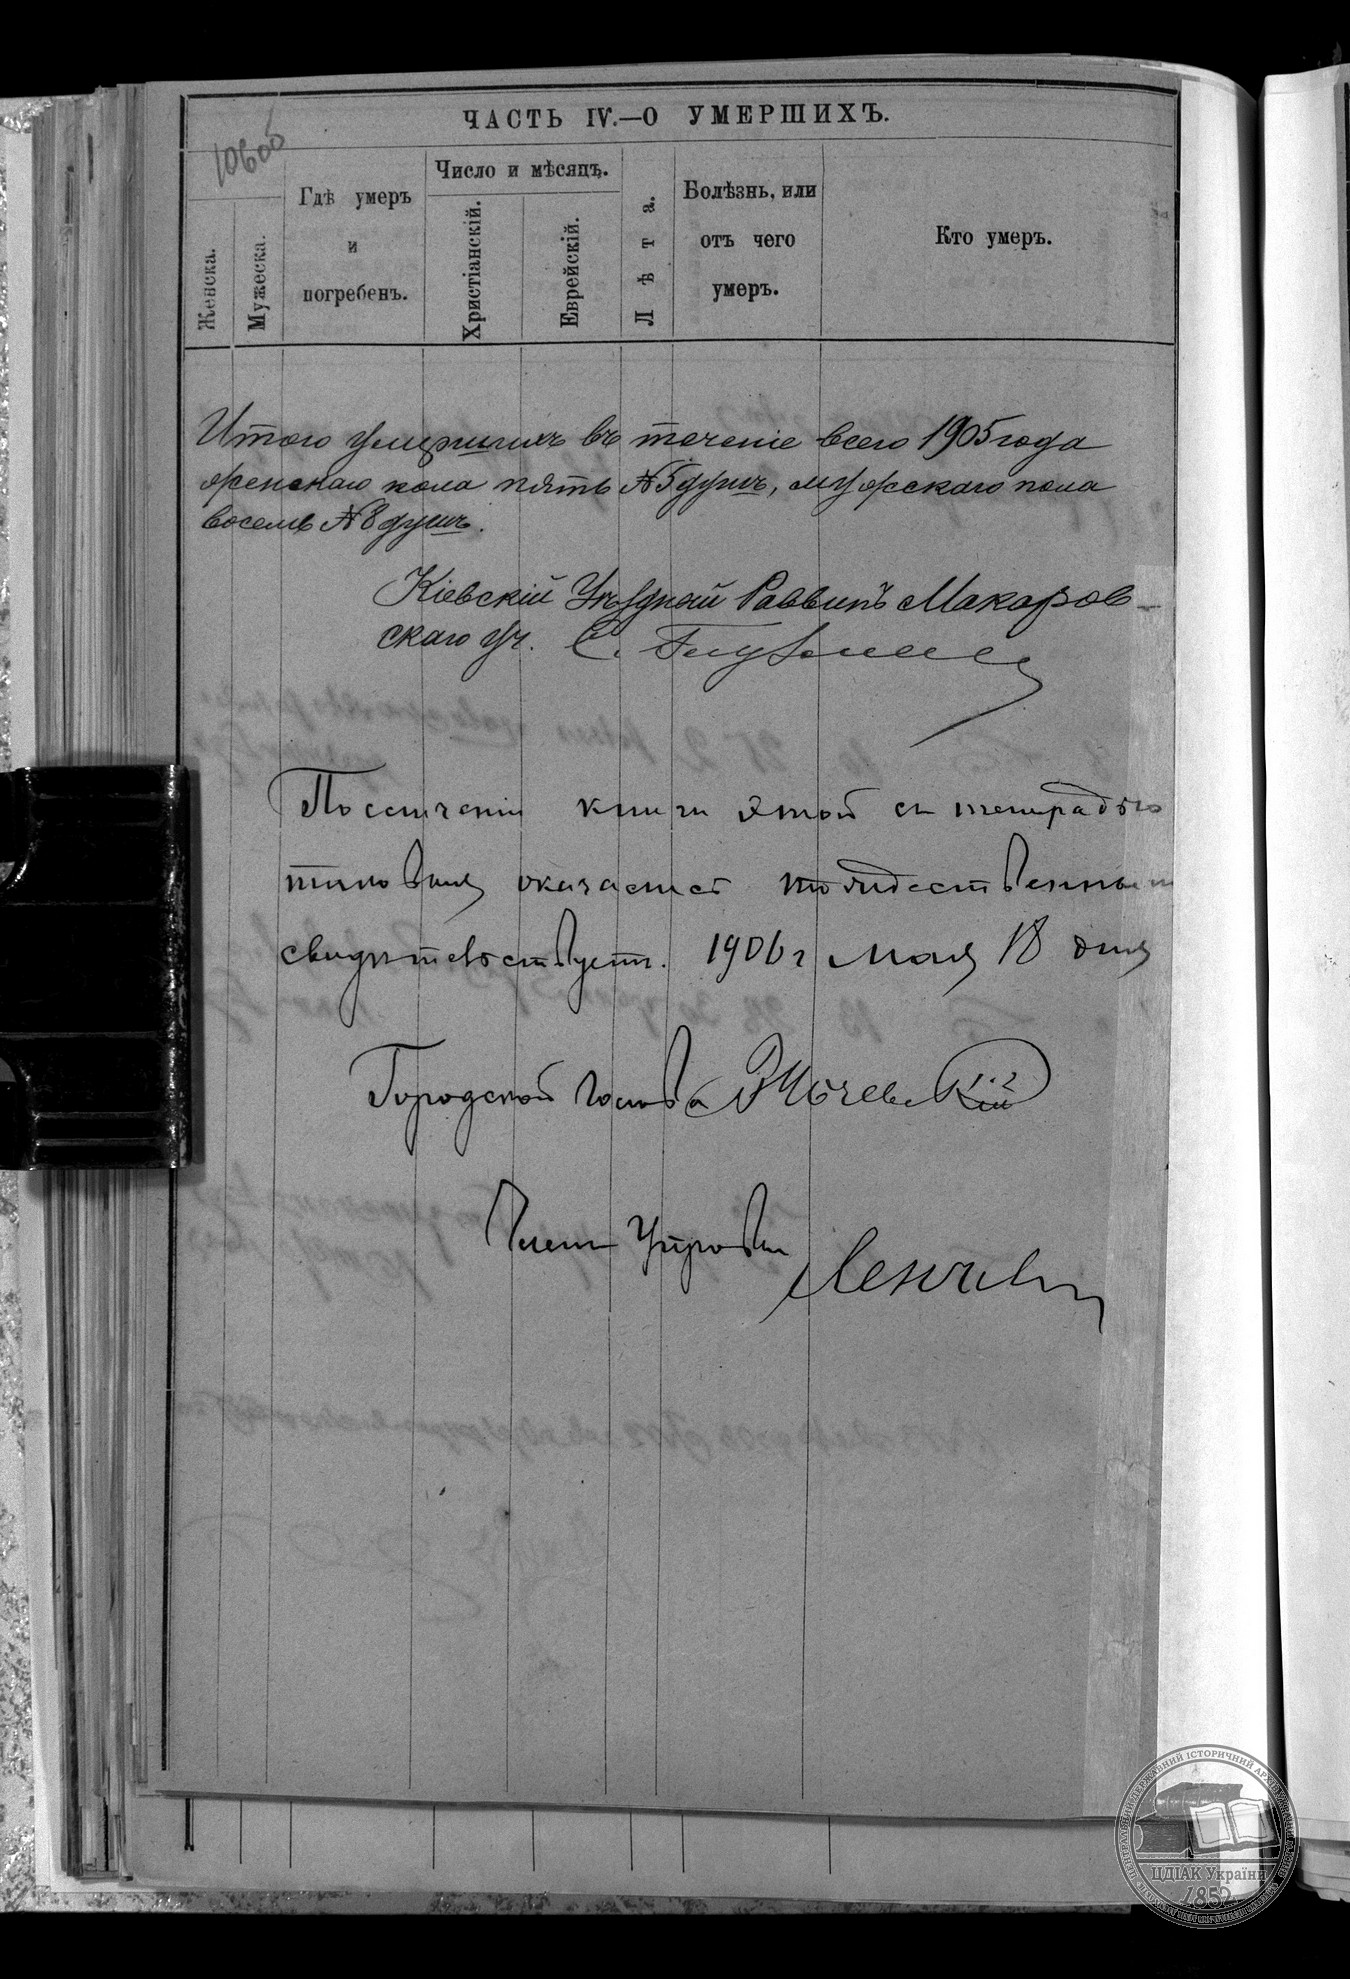 ЧАСТЬ IV.—О УМЕРШИХЪ.
Женска.
Мужеска.
Гдѣ умеръ
и
погребенъ.
Число и мѣсяцъ.
Христіанскій.
Еврейскій.
Лѣта.
Болѣзнь, или
отъ чего
умеръ.
Кто умеръ.
Итого умершихъ въ теченіе всего 1905 года
женскаго пола пять №5 душъ, мужскаго пола
восемь №8 душъ.
Кіевскій Уѣздный Раввинъ Макаров-
скаго уч. С.
По сличеніи книги этой съ тетрадью
таковая оказалась тождественным
свидѣтельствуетъ. 1906 г мая 18 дня
Городской Голова
Членъ Управы
ЦДІАК України
1852